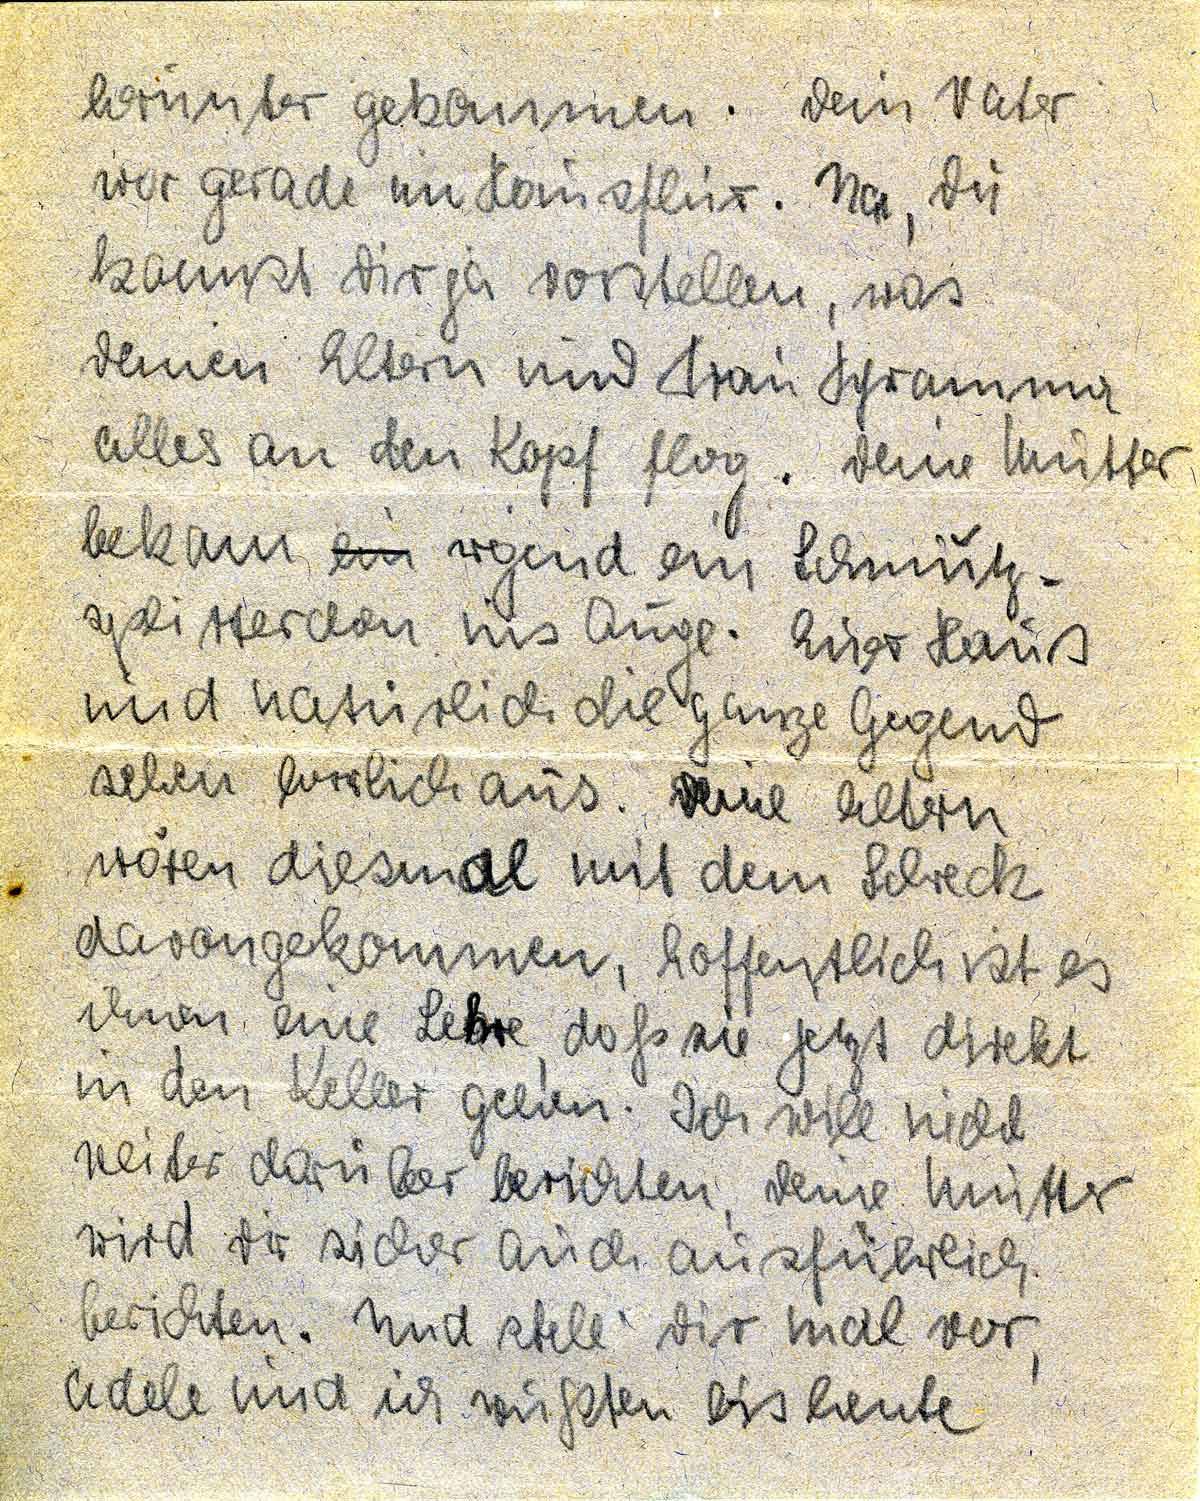 herunter gekommen. Dein Vater
war gerade im Hausflur. Na, Du
kannst Dir ja vorstellen, was
Deinen Eltern und Frau Schramma
alles an den Kopf flog. Deine Mutter
bekam ein irgend ein Schmutz-
splitterchen ins Auge. Euer Haus
und natürlich die ganze Gegend
sehen herrlich aus. Deine Eltern
wären diesmal mit dem Schreck
davongekommen, hoffentlich ist es
ihnen eine Lehre, daß sie jetzt direkt
in den Keller gehen. Ich will nicht
weiter darüber berichten, Deine Mutter
wird Dir sicher auch ausführlich
berichten. Und stell' Dir mal vor,
Adele und ich wußten bis heute